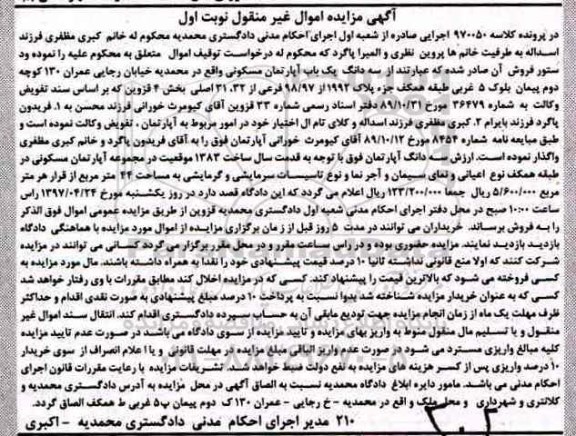 آگهی مزایده اموال غیر منقول نوبت اول
در پرونده کلاسه ۹۷۰۰۵۰ اجرایی صادره از شعبه اول اجرای احکام مدنی دادگستری محمدیه محکوم له خانم کبری مظفری فرزند
اسداله به طرفیت خانم ها پروین نظری و المیرا پاگرد که محکوم له درخواست توقیف اموال متعلق به محکوم علیه را نموده ود
ستور فروش آن صادر شده که عبارتند از سه دانگ یک باب آپارتمان مسکونی واقع در محمدیه خیابان رجایی عمران ۱۳۰ کوچه
دوم پیمان بلوک ۵ غربی طبقه همکف جزء پلاک ۱۹۹۲ از ۹۸/۹۷ فرعی از ۳۲، ۳۱ اصلی بخش ۴ قزوین که بر اساس سند تفویض
وکالت به شماره ۳۶۴۷۹ مورخ ۸۹/۱۰/۳۱ دفتر اسناد رسمی شماره ۳۳ قزوین آقای کیومرث خورانی فرزند محسن به ۱. فریدون
پاگرد فرزند بایرام ۲. کبری مظفری فرزند اسداله و کلای تام ال اختیار خود در امور مربوط به آپارتمان ، تفویض وکالت نموده است و
طبق مبایعه نامه شماره ۸۴۵۴ مورخ ۸۹/۱۰/۱۲ آقای کیومرث خورانی آپارتمان فوق را به آقای فریدون پاگرد و خانم کبری مظفری
واگذار نموده است. ارزش سه دانگ آپارتمان فوق با توجه به قدمت سال ساخت ۱۳۸۳ موقعیت در مجموعه آپارتمان مسکونی در
طبقه همکف نوع اعیانی و نمای سیمان و آجر نما و نوع تاسیسات سرمایشی و گرمایشی به مساحت ۴۴ متر مربع از قرار هر متر
مربع ۵/۶۰۰/۰۰۰ ریال جمعا ۱۲۳/۲۰۰/۰۰۰ ریال اعلام می گردد که این دادگاه قصد دارد در روز یکشنبه مورخ ۱۳۹۷/۰۴/۲۴ راس
ساعت ۱۰:۰۰ صبح در محل دفتر اجرای احکام مدنی شعبه اول دادگستری محمدیه قزوین از طریق مزایده عمومی اموال فوق الذکر
را به فروش برساند. خریداران می توانند در مدت ۵ روز قبل از زمان برگزاری مزایده از اموال مورد مزایده با هماهنگی دادگاه
بازدید نمایند. مزایده حضوری بوده و در راس ساعت مقرر و در محل مقرر برگزار می گردد کسانی می توانند در مزایده
شرکت کنند که اولا منع قانونی نداشته ثانیا ۱۰ درصد قیمت پیشنهادی خود را نقدا به همراه داشته باشند. مال مورد مزایده به
کسی فروخته می شود که بالاترین قیمت را پیشنهاد کند. کسی که در مزایده اخلال کند مطابق مقررات با وی رفتار خواهد شد
کسی که به عنوان خریدار مزایده شناخته شد بدوا نسبت به پرداخت ۱۰ درصد مبلغ پیشنهادی به صورت نقدی اقدام و حداکثر
ظرف مهلت یک ماه از زمان انجام مزایده جهت تودیع مابقی آن به حساب سپرده دادگستری اقدام کند. انتقال سند اموال غیر
منقول و یا تسلیم مال منقول منوط به واریز بهای مزایده و تایید مزایده از سوی دادگاه می باشد در صورت عدم تایید مزایده
کلیه مبالغ واریزی مسترد می شود و در صورت عدم واریز الباقی مبلغ مزایده در مهلت قانونی و یا اعلام انصراف از سوی خریدار
۱۰ درصد واریزی پس از کسر هزینه های مزایده به نفع دولت ضبط خواهد شد. تشریفات مزایده با رعایت مقررات قانون اجرای
احکام مدنی می باشد. مامور دایره ابلاغ دادگاه محمدیه نسبت به الصاق آگهی در محل مزایده به آدرس دادگستری محمدیه و
کلانتری و شهرداری و محل ملک و اقع در محمدیه – خ رجایی – عمران ۱۳۰ ک دوم پیمان ب۵ غربی ط همکف الصاق گردد.
۲۱۰ مدیر اجرای احکام مدنی دادگستری محمدیه – اکبری